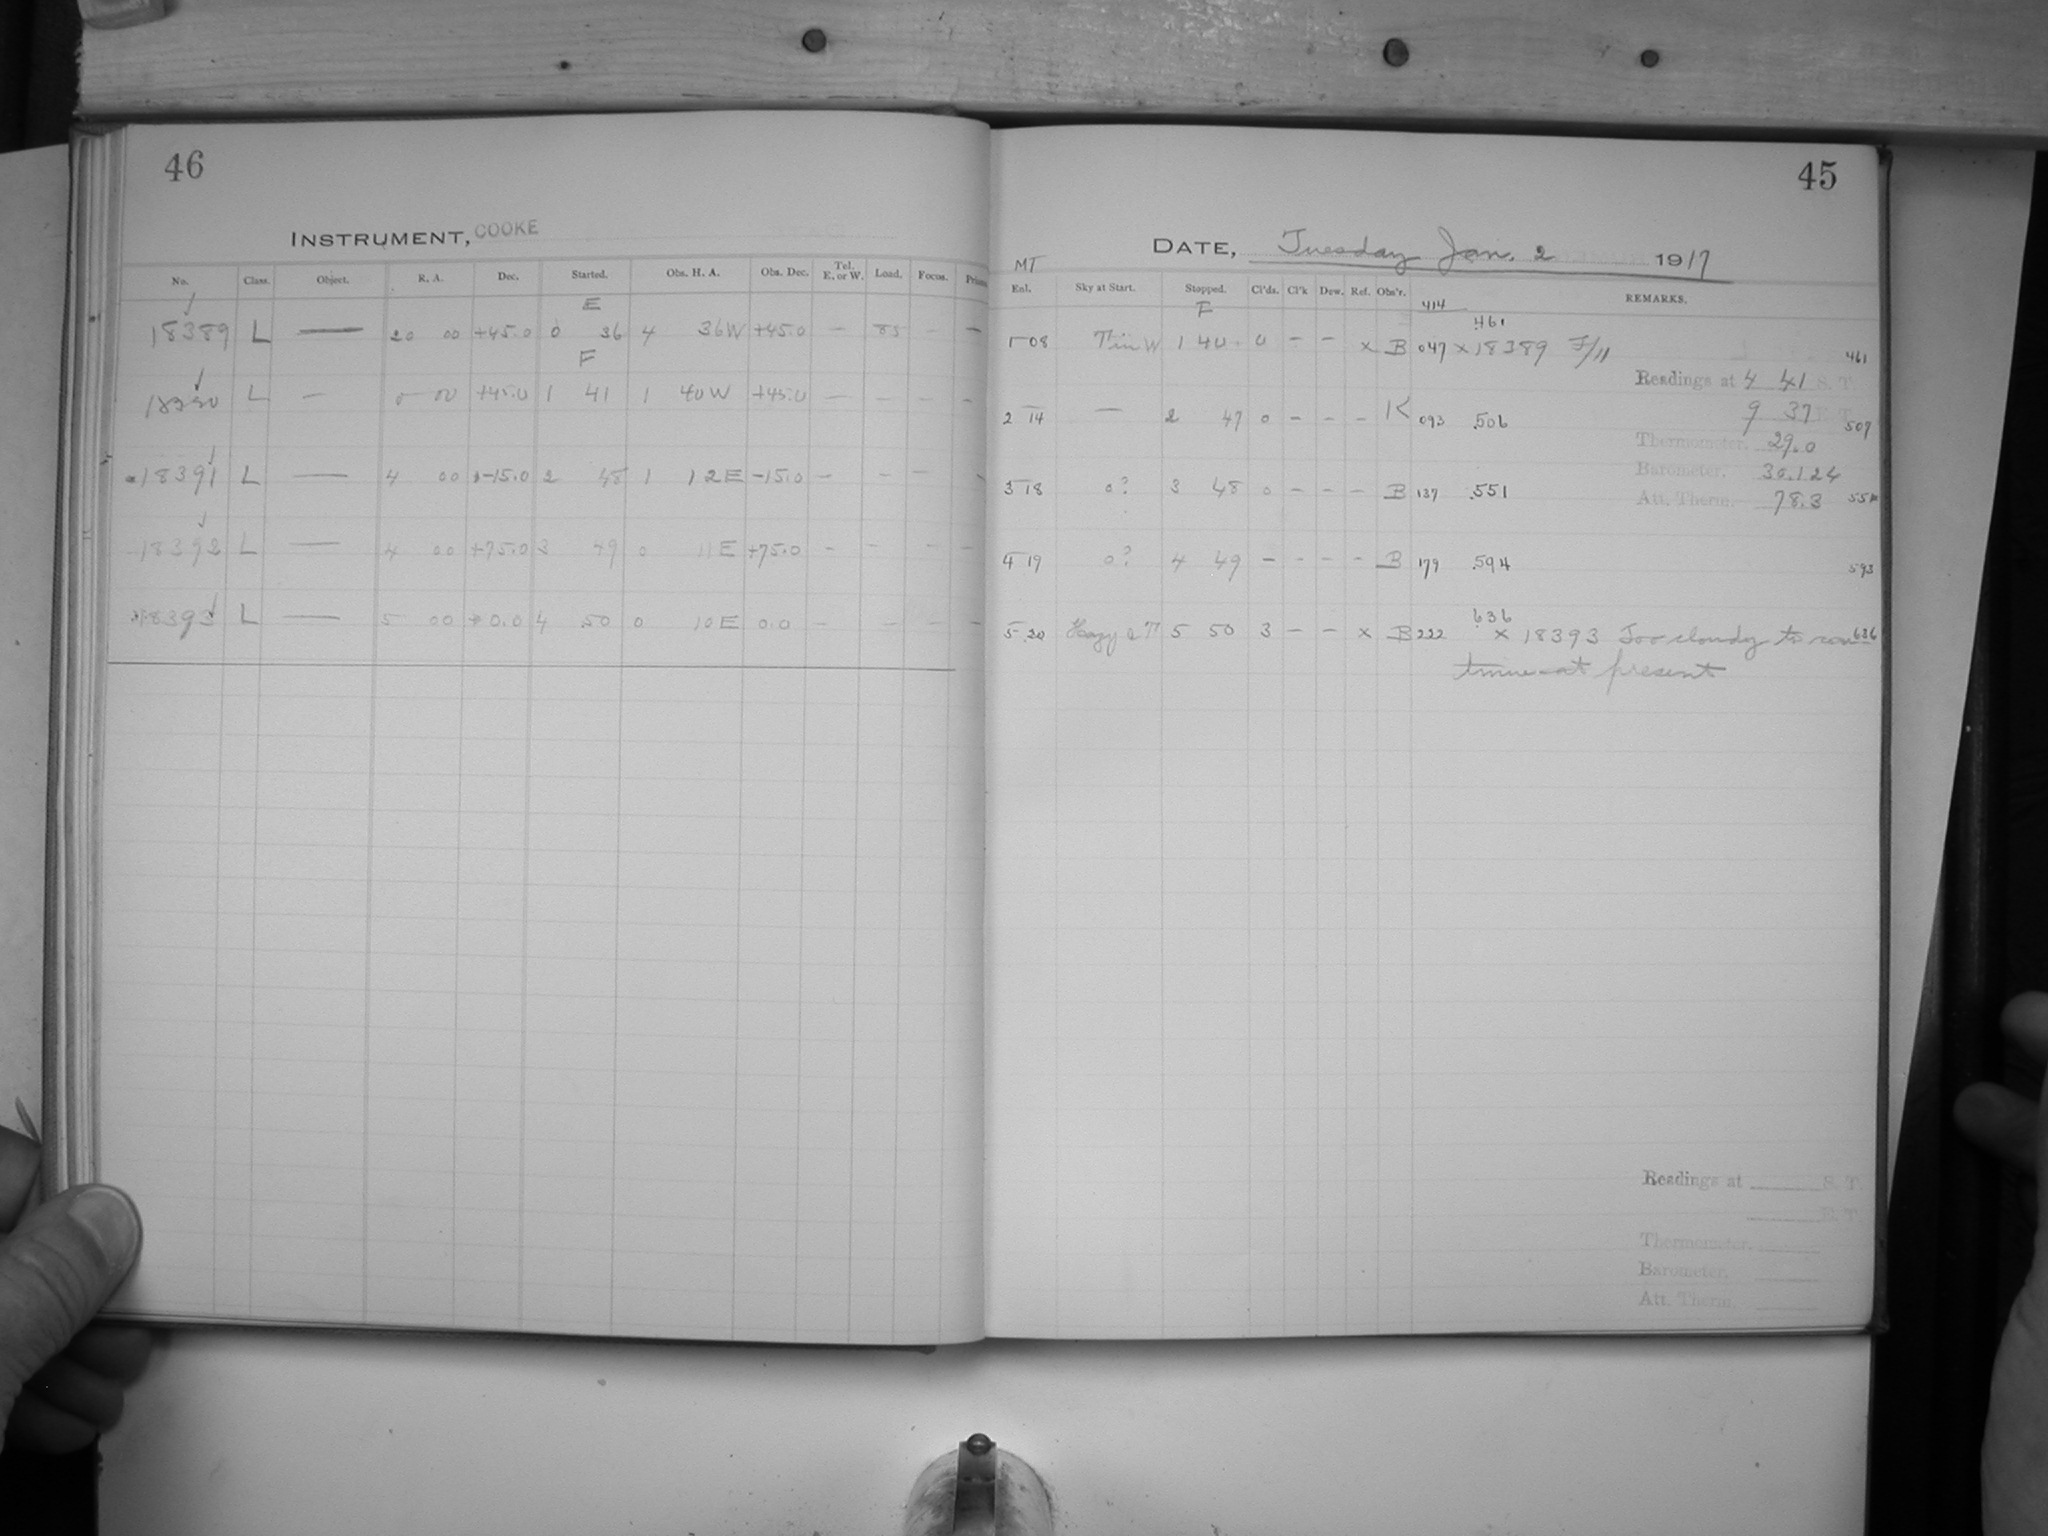 46
INSTRUMENT, COOKE
No. Class. Object. R. A. Dec. Started. Obs. H. A. Obs. Dec. Tel. E. or W. Load. Focus.
E
18389 L — 20 00 +45.0 0 36 4 36W +45.0 — 85 — —
F
L — 00 +45.0 1 41 1 40W +45.0 — — — —
18391 L — 4 00 -15.0 2 48 1 12E -15.0 — — —
18392 L — 4 00 +75.0 3 49 0 11E +75.0 — — — —
18393 L — 5 00 0.0 4 50 0 10E 0.0 — — — —
45
DATE, Tuesday Jan. 2 1917
MT
Enl. Sky at Start. Stopped. Cl'ds. Cl'k Dew. Ref. Obs'r. REMARKS.
F 414
461
1 08 1 40 0 — — x B 047 x 18389 F/11 461
Readings at 4 41 S. T.
9 37 E. T.
2 14 — 2 47 0 — — — K 093 .506 507
Thermometer. 29.0
Barometer. 30.124
3 18 0? 3 48 0 — — — B 137 .551
Att. Therm. 78.3
4 19 0? 4 49 — — — — B 179 .594 593
636
5 20 Hazy 5 50 3 — — x B 222 x 18393 Too cloudy to con- 636
tinue at present
Readings at S. T.
E. T.
Thermometer.
Barometer.
Att. Therm.